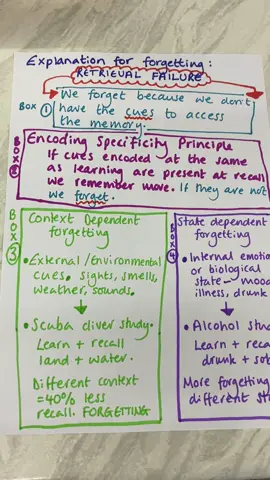 Explanation for forgetting:
RETRIEVAL FAILURE
We forget because we don't
have the cues to access
the memory.
BOX 1
BOX 2
Encoding Specificity Principle
If cues encoded at the same
as learning are present at recall
we remember more. If they are not
we forget.
BOX 3
Context Dependent
forgetting
• External/Environmental
cues. sights, smells,
weather, sounds.
• Scuba diver study.
Learn + recall
land + water.
Different context
= 40% less
recall. FORGETTING
BOX 4
State dependent
forgetting
• Internal
or biological
state - mood
illness, drunk
• Alcohol
Learn +
drunk +
More forgetting
different